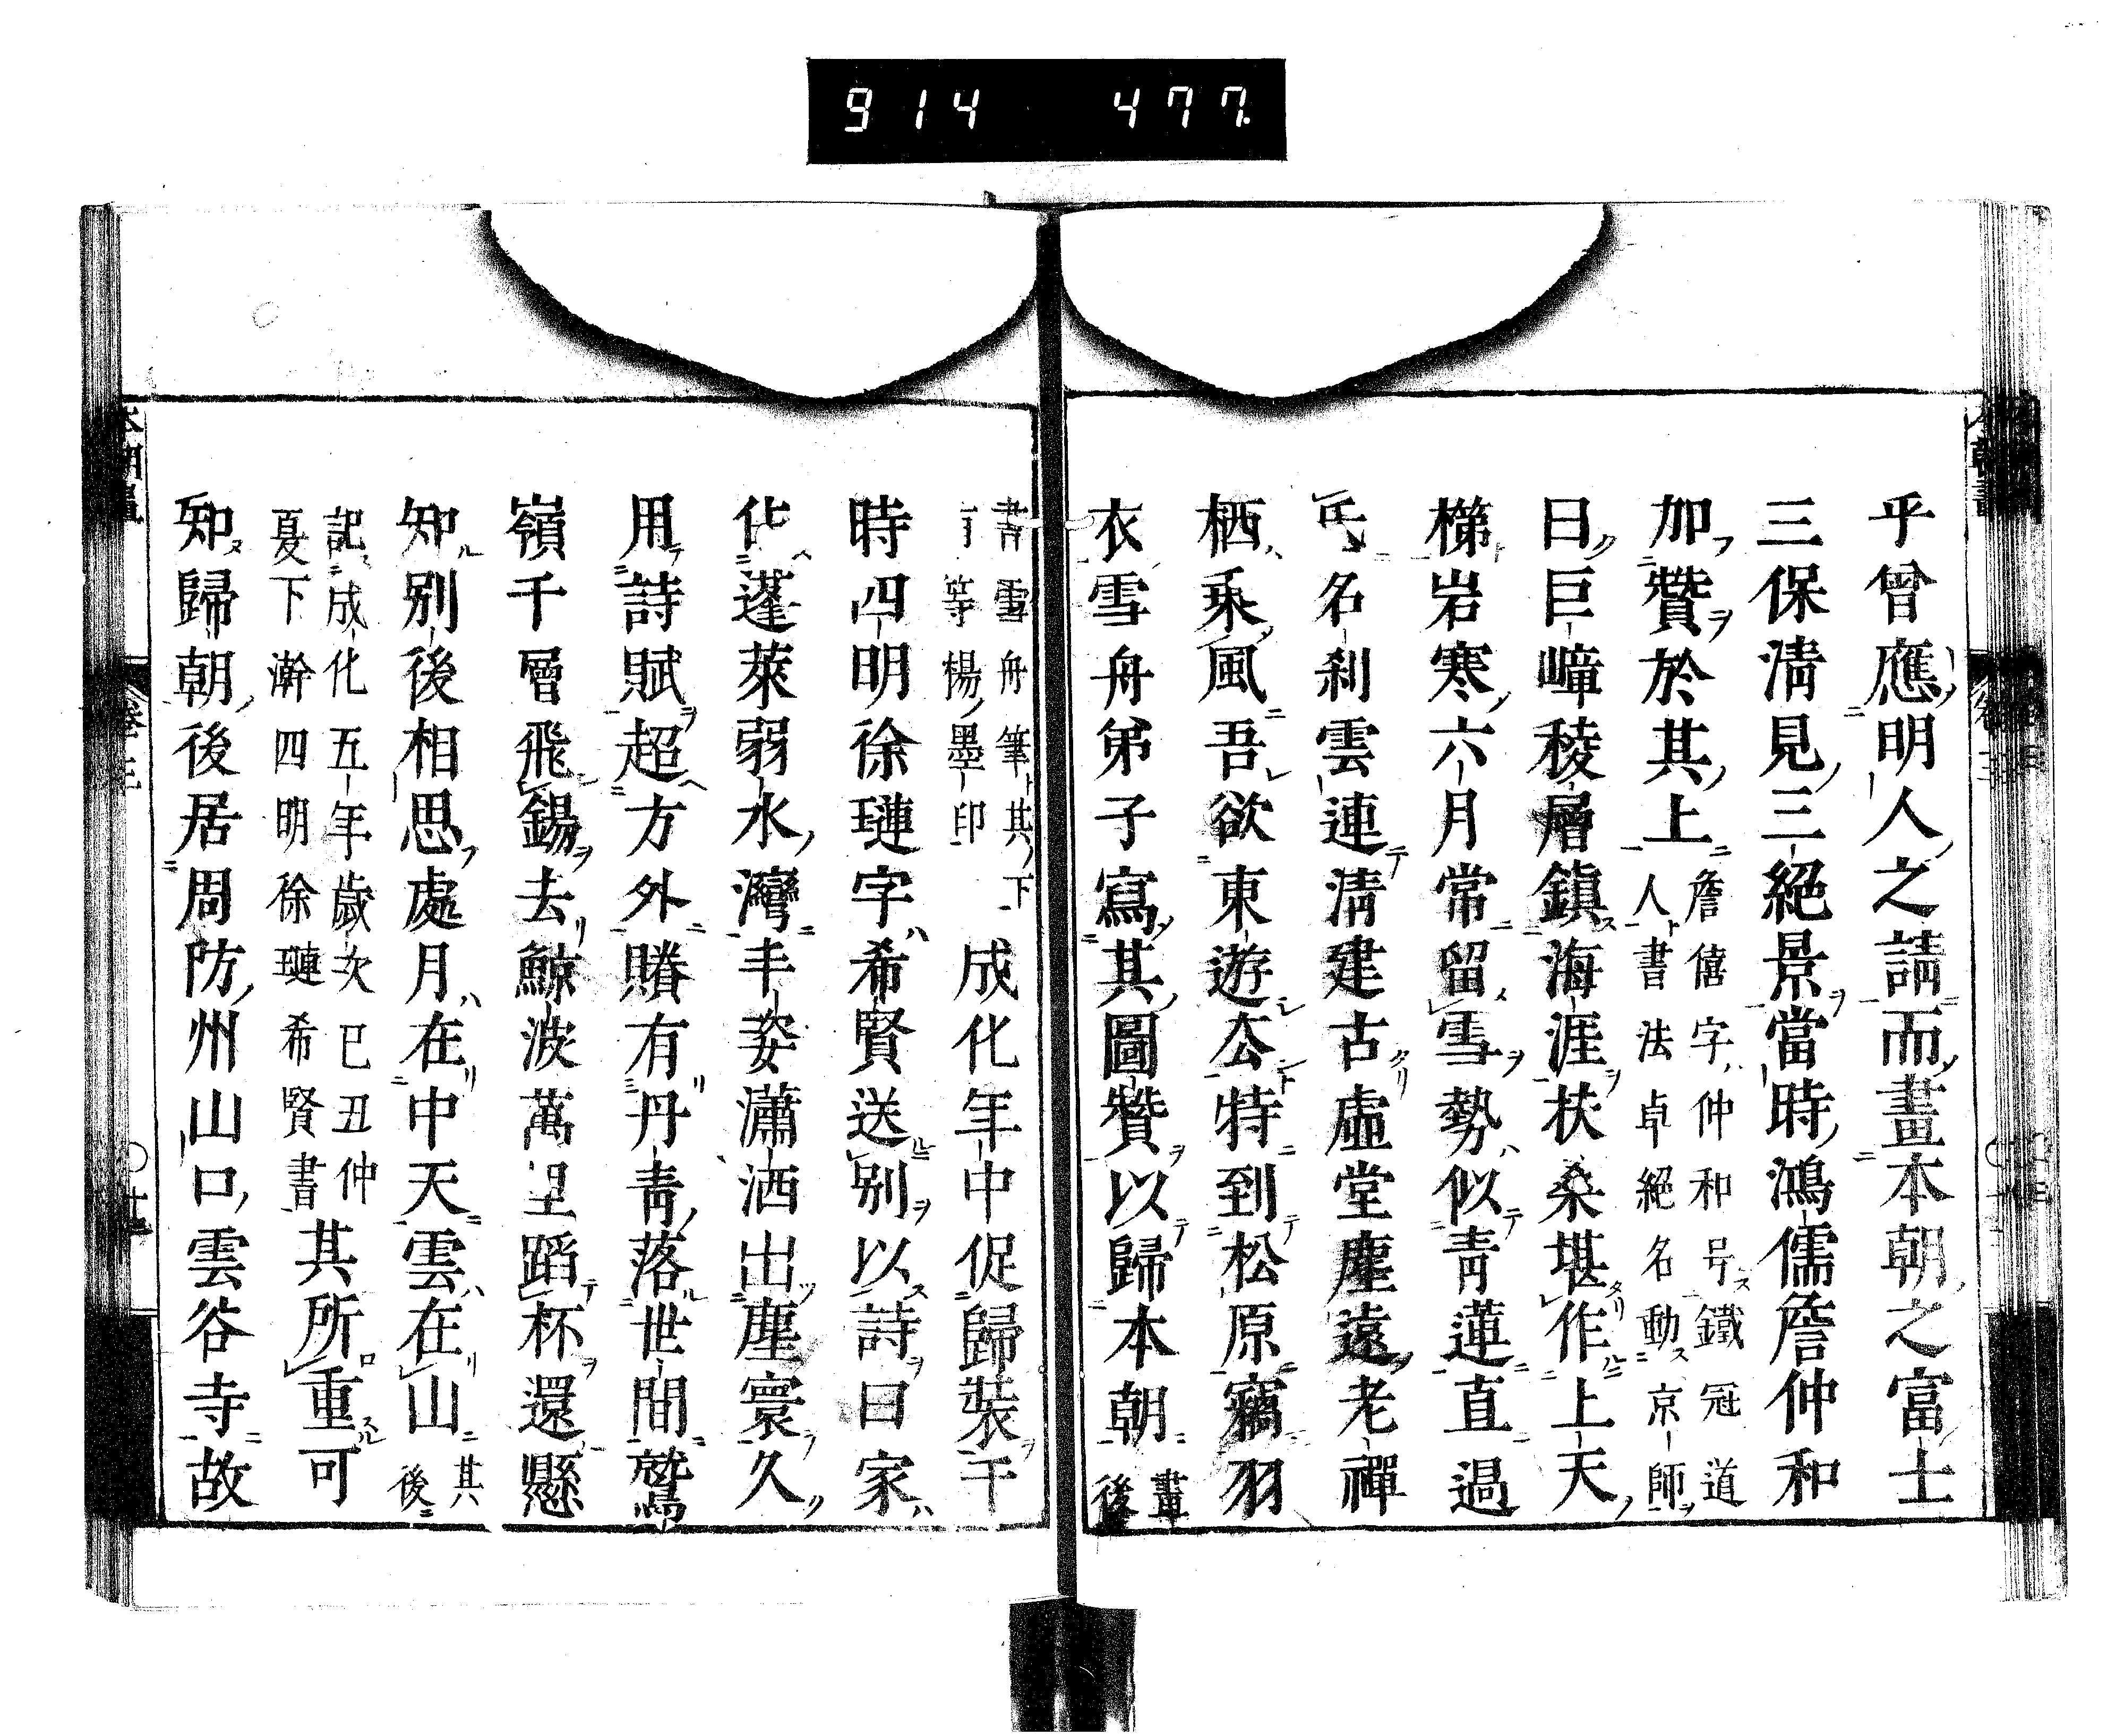 914 477.
乎曾應明人之請而畫本朝之富士
三保清見三絕景當時鴻儒詹仲和
加贊於其上詹僖字仲和号鐵冠道
人書法卓絕名動京師
曰巨嶂稜層鎮海涯扶桑堪作上天
梯岩寒六月常留雪勢似青蓮直過
氐名刹雲連清建古虛堂塵遠老禪
栖乘風吾欲東遊去特到松原竊羽
衣雪舟弟子寫其圖贊以歸本朝畫
後
書雪舟筆其下
有等楊墨印
成化年中促歸裝于
時四明徐璉字希賢送別以詩曰家
住蓬萊弱水灣丰姿瀟洒出塵寰久
用詩賦超方外賸有丹青落世間鷲
嶺千層飛錫去鯨波萬里蹈杯還懸
知別後相思處月在中天雲在山其
後
記成化五年歲次己丑仲
夏下澣四明徐璉希賢書
其所重可
知歸朝後居周防州山口雲谷寺故